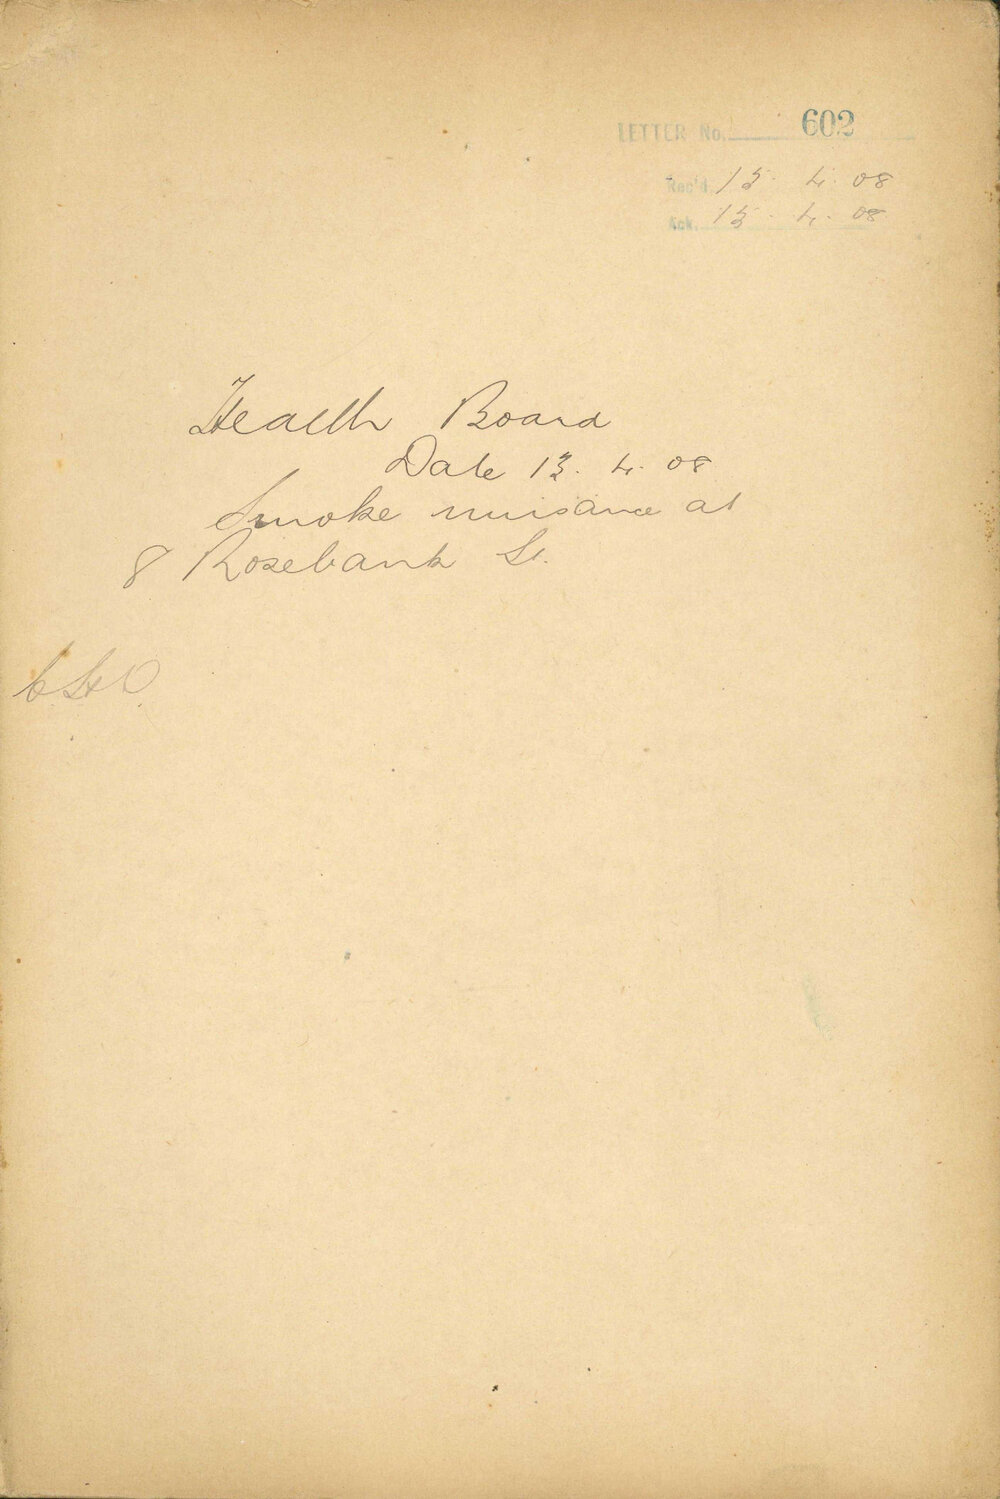 LETTER No. 602
Rec'd 15. 4. 08
Ack. 15. 4. 08
Health Board
Date 13. 4. 08
Smoke nuisance at
8 Rosebank St.
C.H.O.